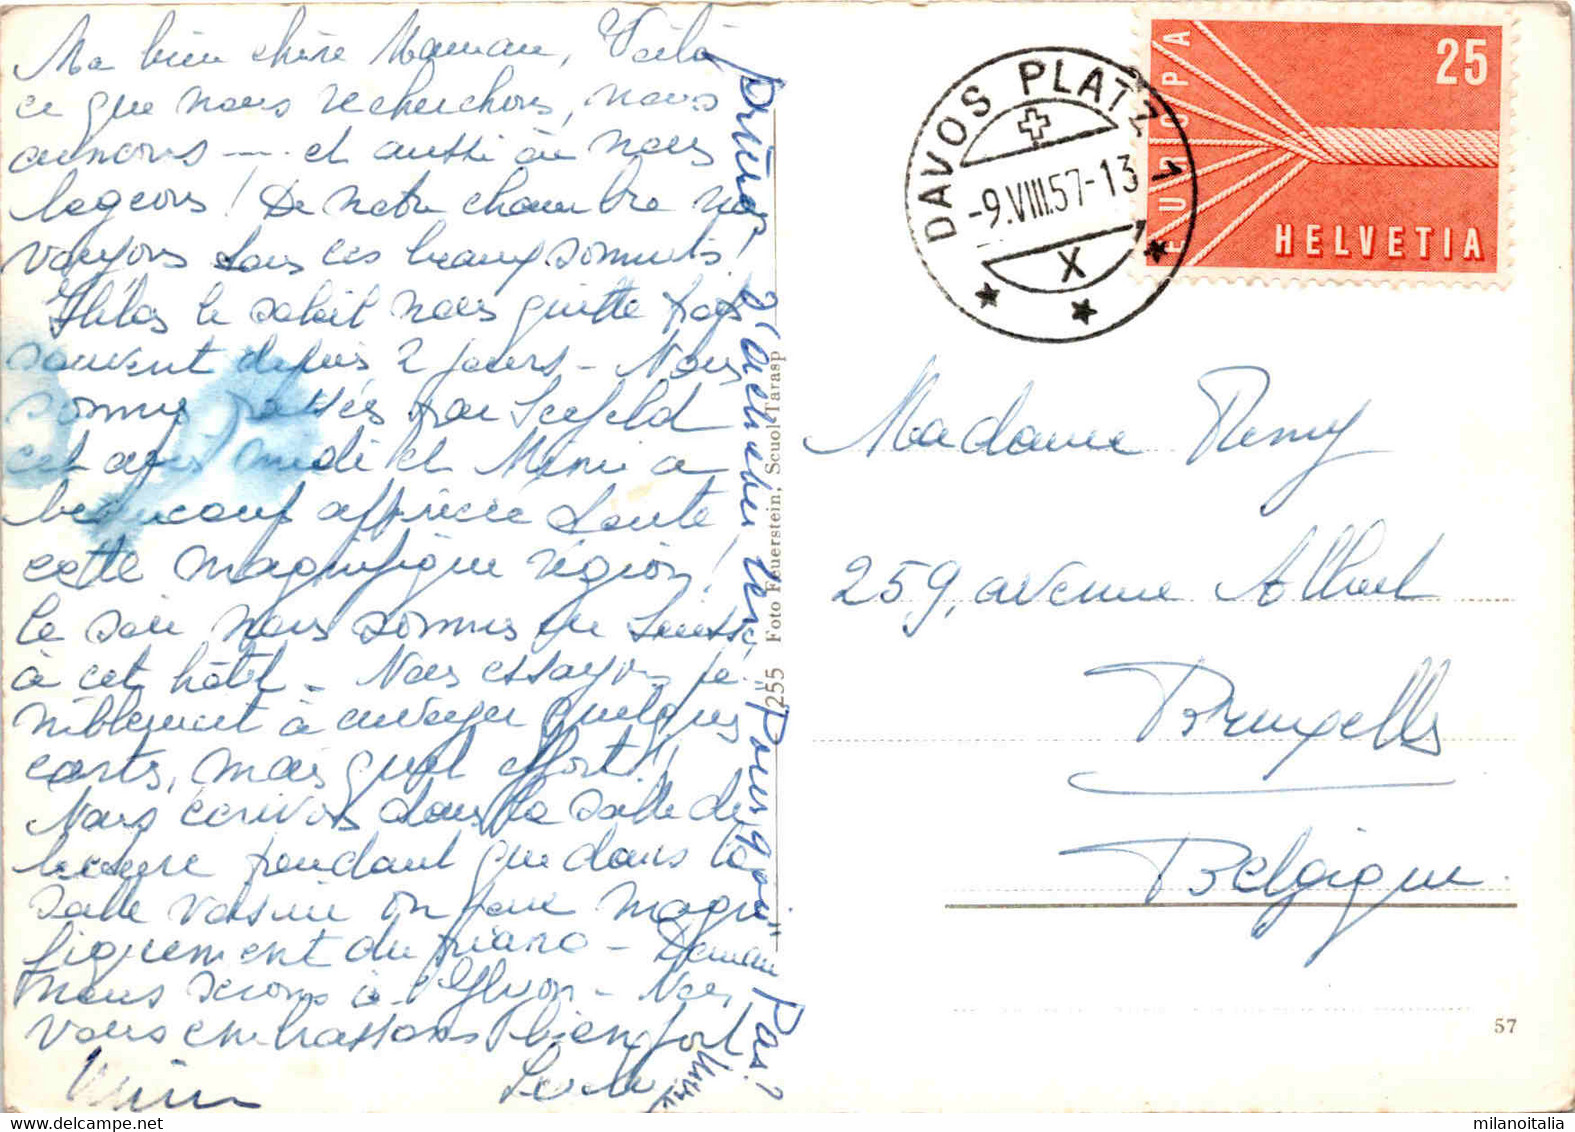 Ma bien chère Maman, Voilà
ce que nous recherchons, nous
aimons — et aussi où nous
logeons ! De notre chambre nous
voyons tous ces beaux sommets !
Hélas le soleil nous quitte trop
souvent depuis 2 jours - Nous
sommes passés par Seefeld
cet après midi et Mimi a
beaucoup apprécié toute
cette magnifique région !
Le soir nous sommes en Suisse
à cet hôtel - Nous essayons pé-
niblement à envoyer quelques
cartes, mais quel effort !!
Nous écrivons dans la salle de
lecture pendant que dans la
salle voisine on joue magni-
fiquement du piano - Demain
nous serons à
vous embrassons bien fort
255 Foto Feuerstein, Scuol-Tarasp
"Pourquoi Pas?
DAVOS PLATZ 1
-9.VIII.57-13
X
EUROPA
25
HELVETIA
Madame Remy
259, avenue Albert
Bruxelles
Belgique.
57
milanoitalia